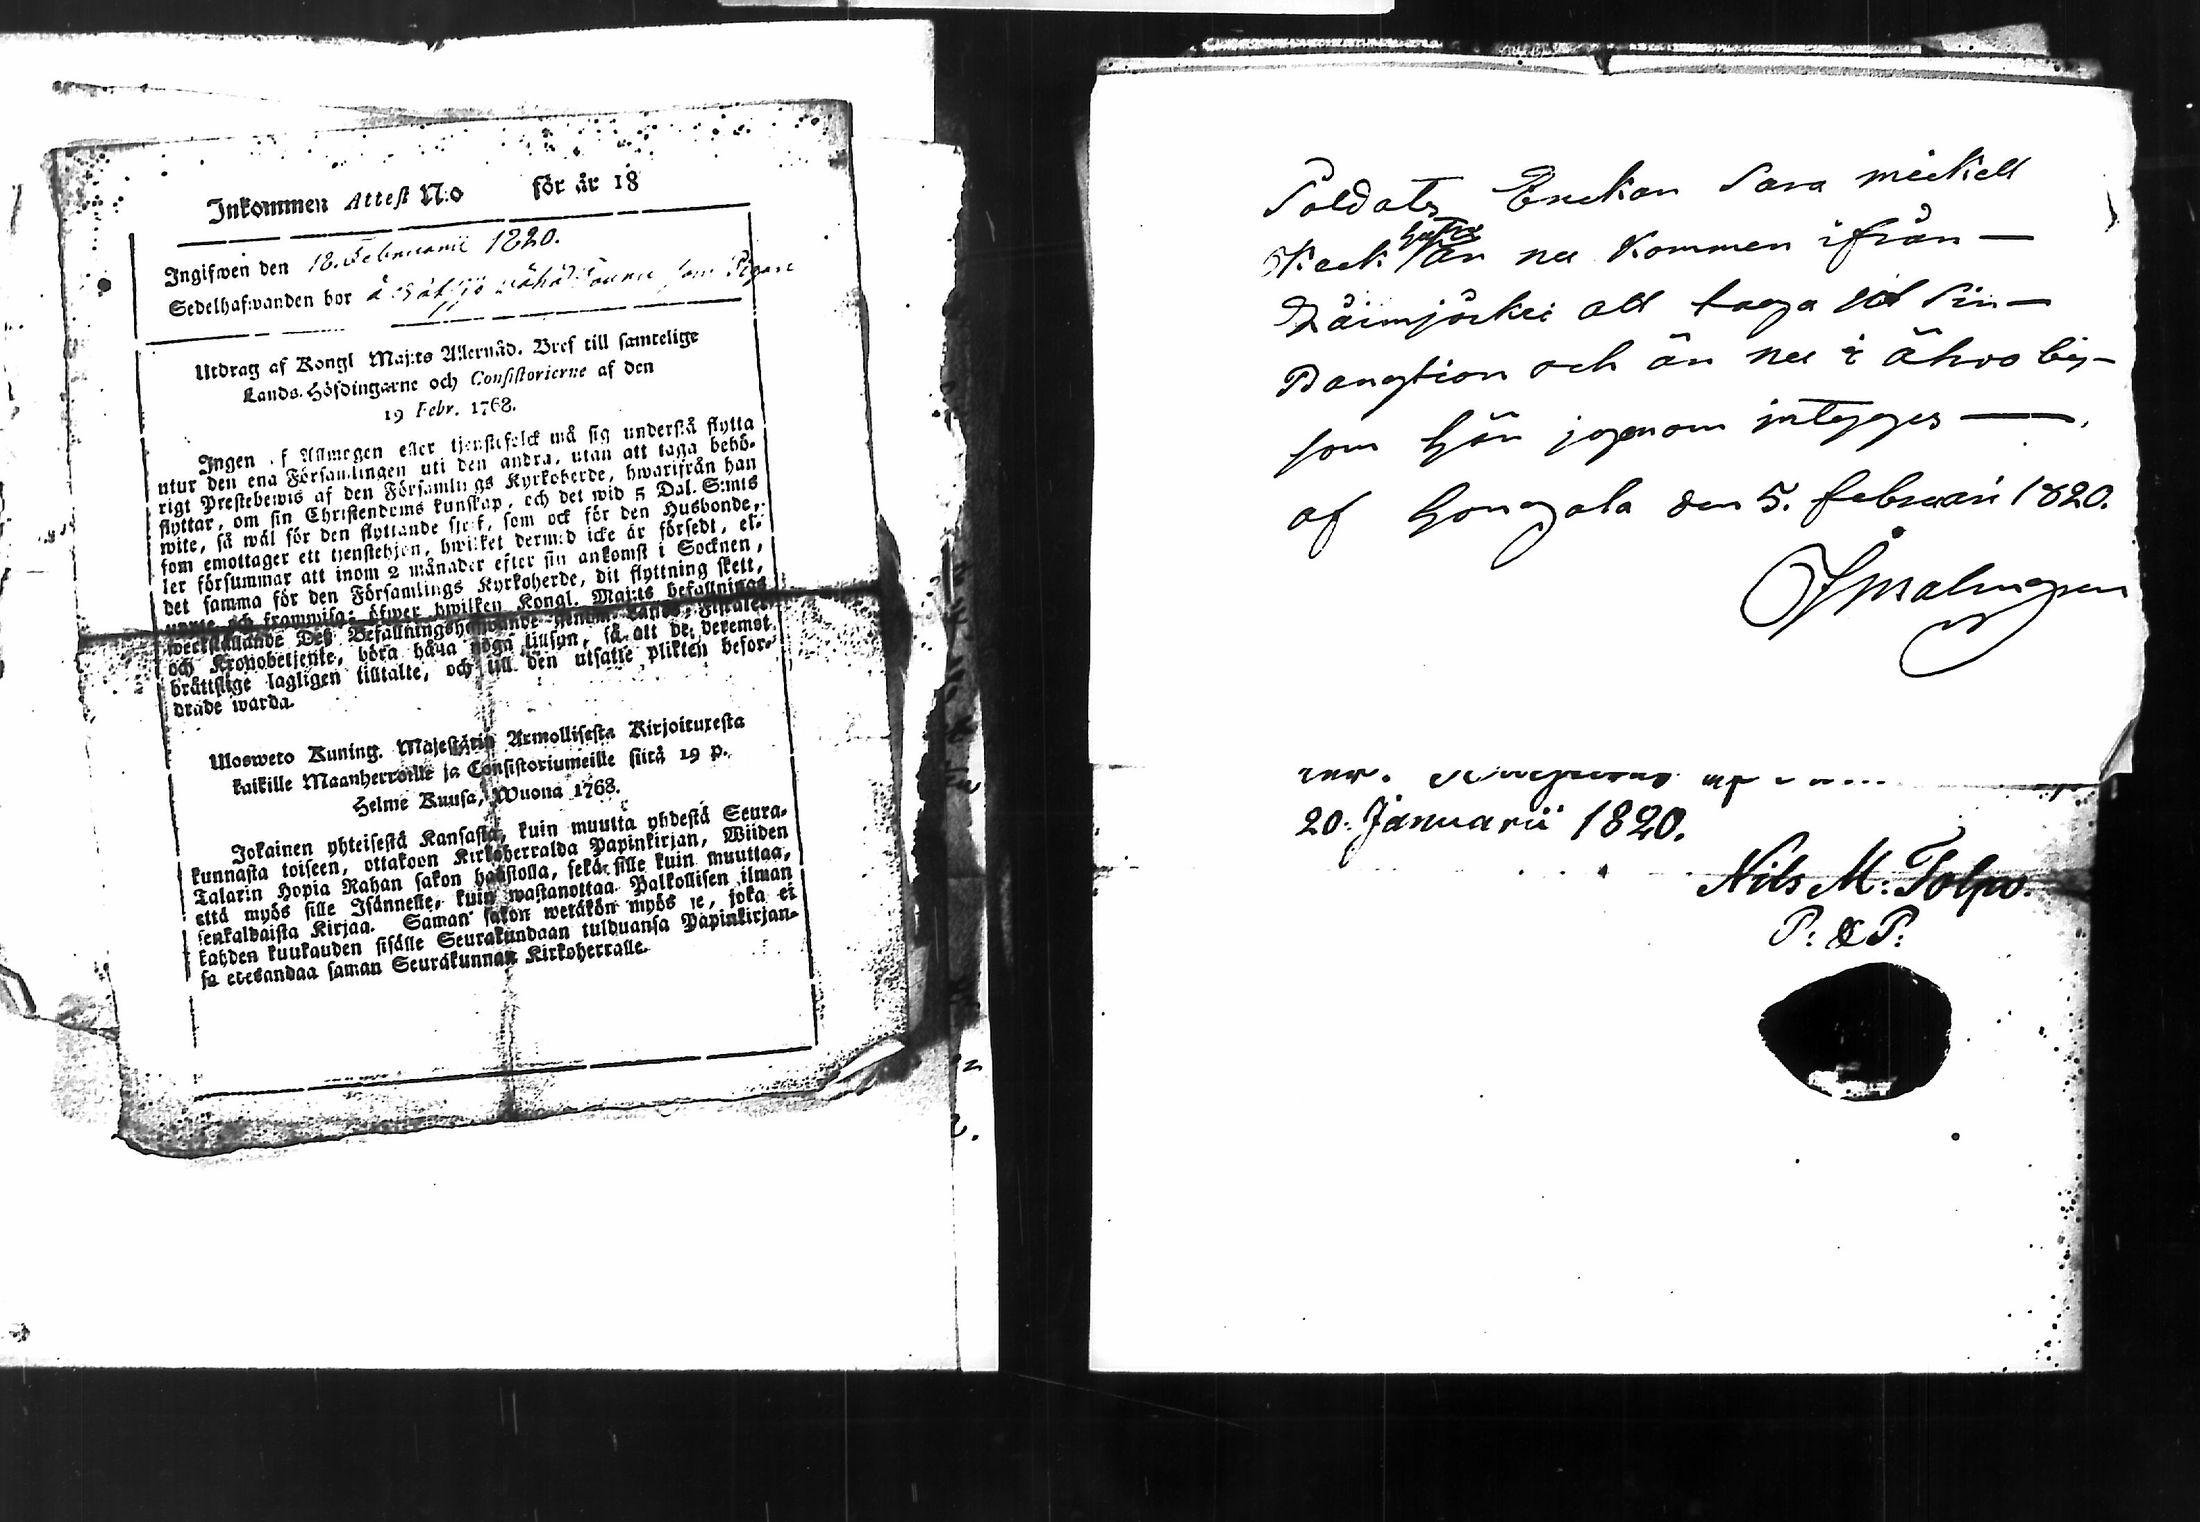 Inkommen Attest N:o för år 18
Ingifwen den 18. Februarii 1820.
Sedelhafwanden bor å
Utdrag af Kongl Maj:ts Allernåd. Bref till samtelige
Lands-Höfdingarne och Consistorierne af den
19 Febr. 1768.
Ingen af Allmogen eller tjenstefolck må sig understå flytta
utur den ena Församlingen uti den andra, utan att taga behö-
rigt Prestebewis af den Församlings Kyrkoherde, hwarifrån han
flyttar, om sin Christendoms kunskap, och det wid 5 Dal. S:mts
wite, så wäl för den flyttande sjelf, som ock för den Husbonde,
som emottager ett tjenstehjon, hwilket dermed icke är försedt, el-
ler försummar att inom 2 månader efter sin ankomst i Socknen,
det samma för den Församlings Kyrkoherde, dit flyttning skett,
och framwisa: öfwer hwilken Kongl. Maj:ts befallnings
werkställande Des Befallningshafwande genom Lands-Fiscaler
och Kronobetjente, böra hafwa noga tillsyn, så att de deremot
bråttslige lagligen tilltalte, och till den utsatte plikten befor-
drade warda.
Ulosweto Kuning. Majestätin Armollisesta Kirjoituxesta
kaikille Maanherroille ja Consistoriumeille siitä 19 p.
Helme Kuusa, Wuona 1768.
Jokainen yhteisestä Kansasta, kuin muutta yhdestä Seura-
kunnasta toiseen, ottakoon Kirkoherralda Papinkirjan, Wiiden
Talarin Hopia Rahan sakon haastolla, sekä sille kuin muuttaa,
että myös sille Isännelle, kuin wastanottaa Palkollisen ilman
senkaldaista Kirjaa. Saman sakon wetäkön myös se, joka ei
kahden kuukauden sisälle Seurakundaan tulduansa Papinkirjan-
sa edesandaa saman Seurakunnan Kirkoherralle.
Soldats Enckan Sara mickell
hustru
Keck är nu kommen ifrån —
att taga sin —
och än nu i
som här intygges —
af hongola den 5. februari 1820.
JMalmgren
20. Januarii 1820.
Nils M. Tolpo.
P. & P.